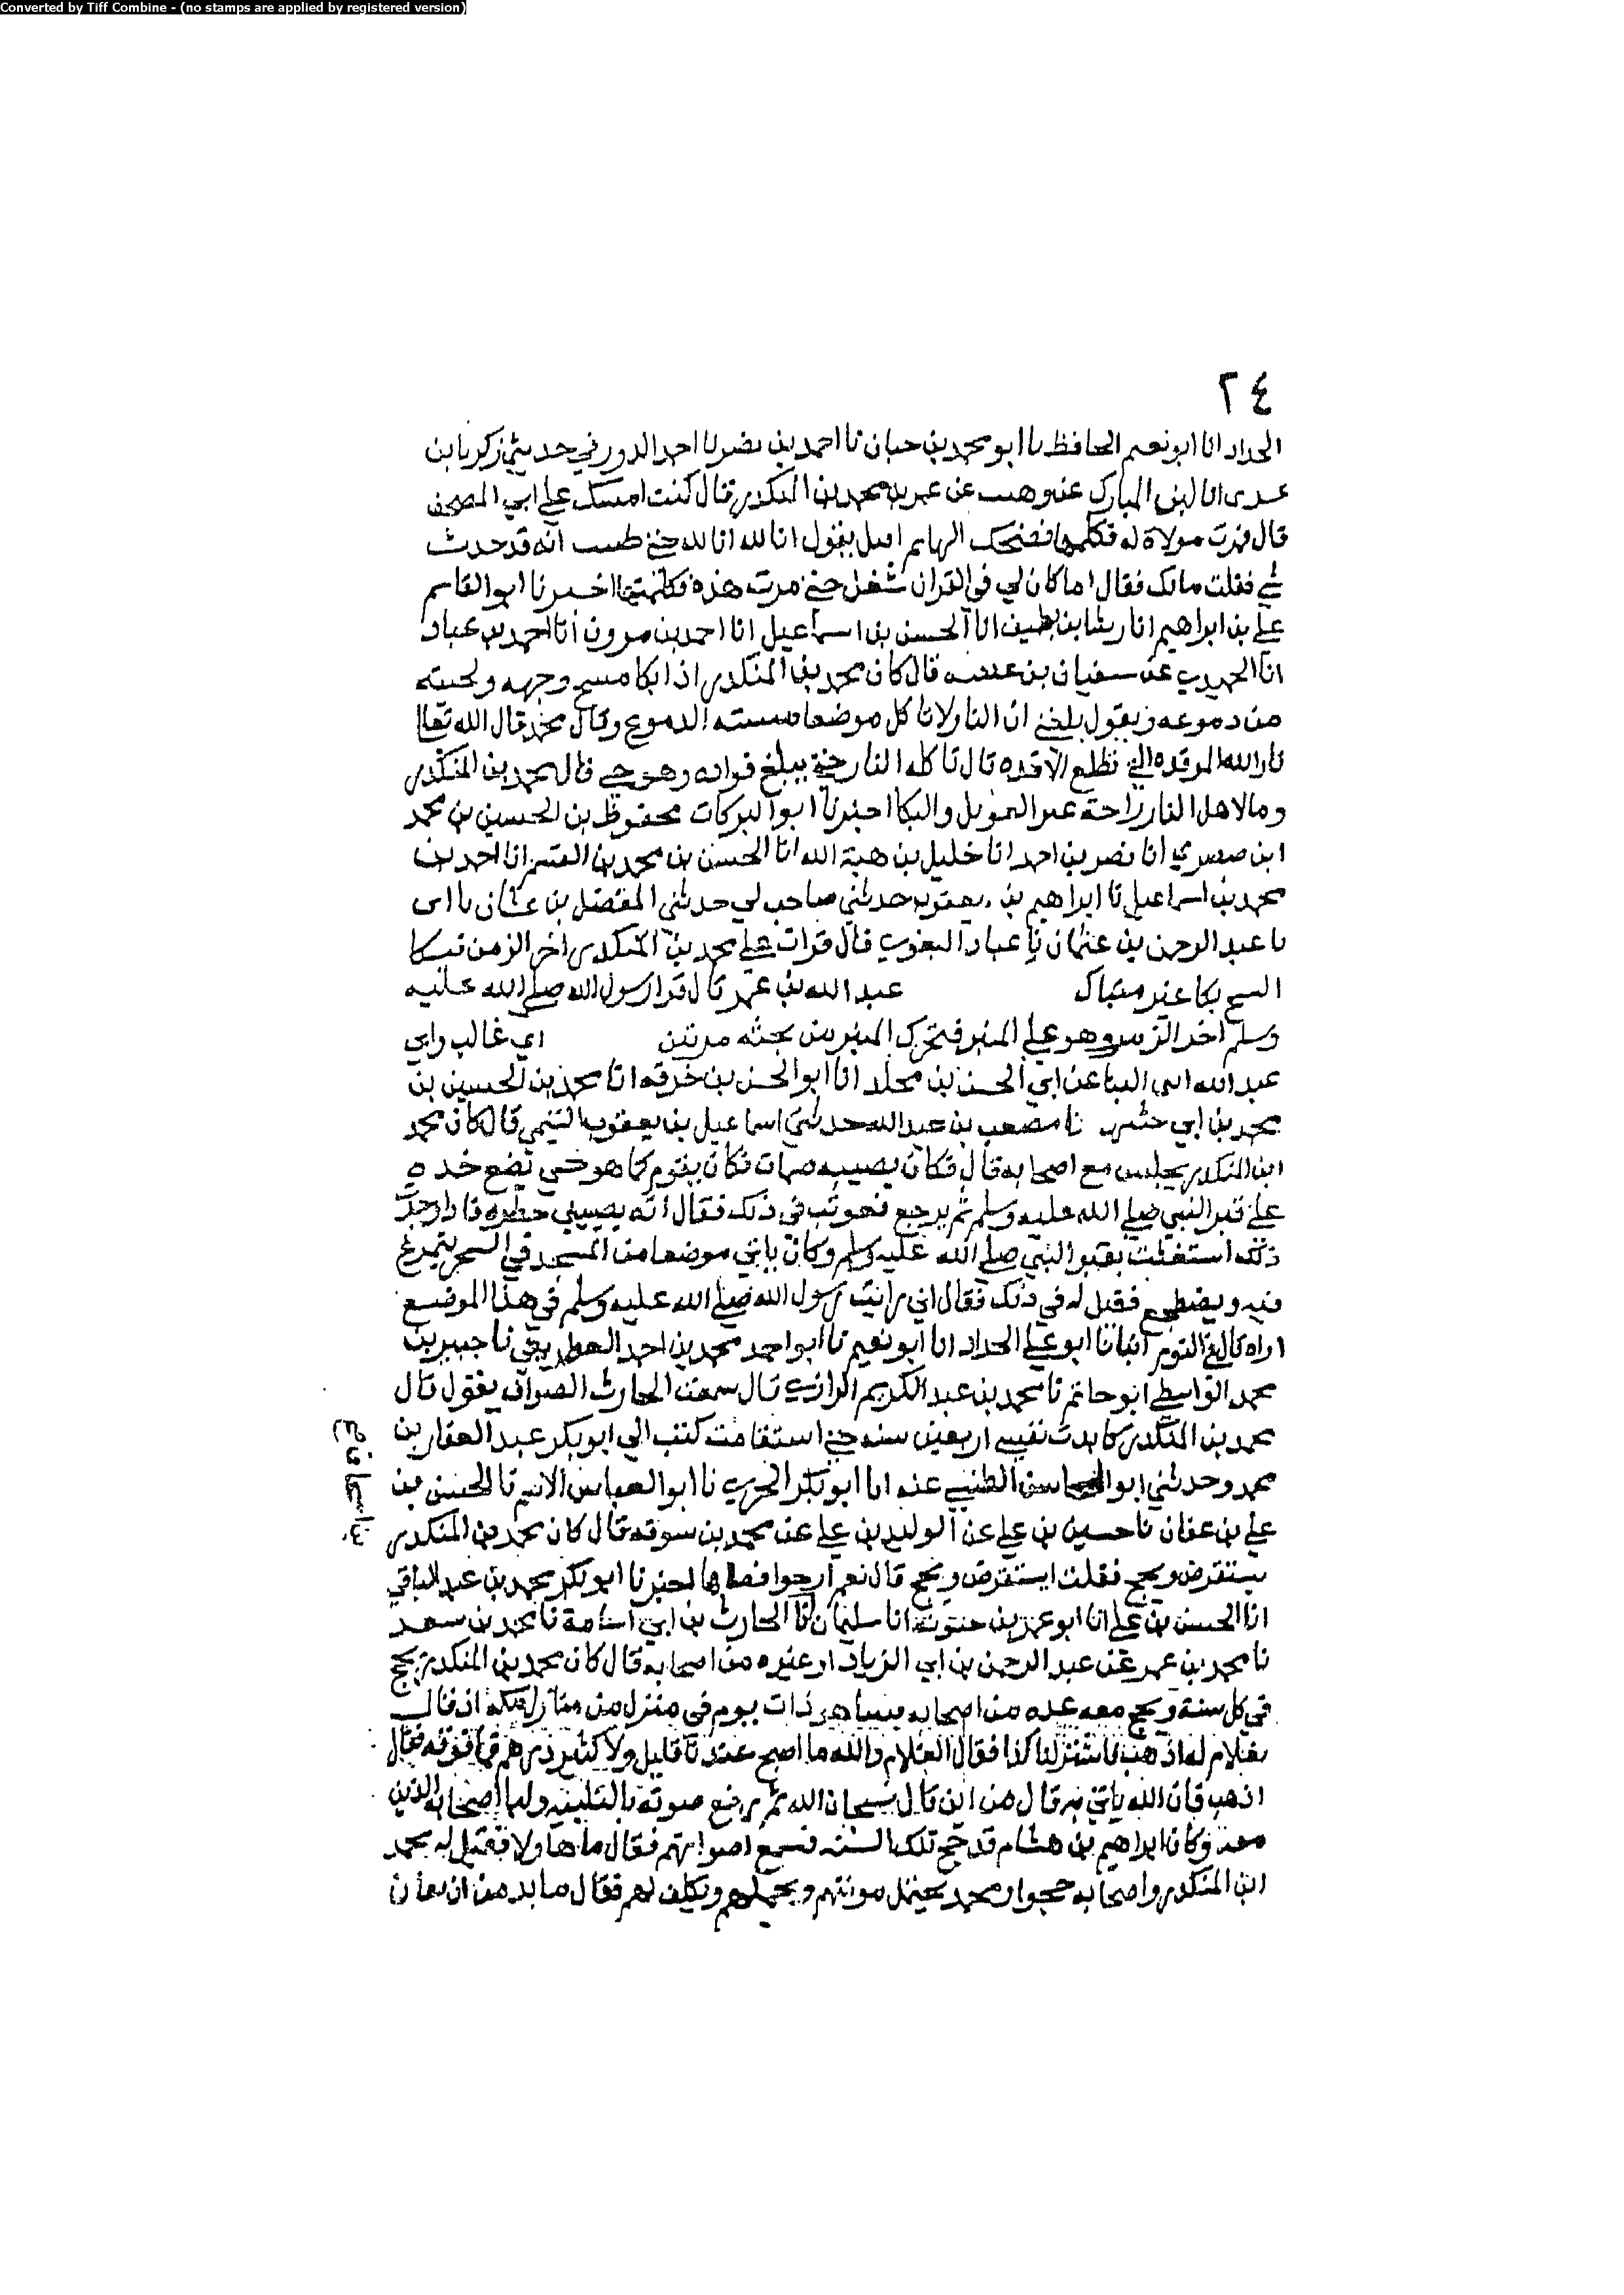 Converted by Tiff Combine - (no stamps are applied by registered version)
٢٤
الحداد انا ابو نعيم الحافظ نا ابو محمد بن حبان نا احمد بن نصر نا احمد الدورقي حدثني زكريا بن
عدى انا ابن المبارك عن وهيب عن عمر بن محمد بن المنكدر قال كنت امسك على ابي المصحف
قال فمرت مولاة له فكلمها فضحك اليها ثم اقبل يقول انا لله انا لله حتى ظننت انه قد حدث
شي فقلت مالك فقال اما كان لي في القران شغل حتى مرت هذه فكلمتها اخبرنا ابو القاسم
علي بن ابراهيم انا رشا بن نظيف انا الحسن بن اسماعيل انا احمد بن مرون انا احمد بن عباد
انا الحميدي عن سفيان بن عيينه قال كان محمد بن المنكدر اذا بكا مسح وجهه ولحيته
من دموعه ويقول بلغني ان النار لا تاكل موضعا مسته الدموع وقال محمد قال الله تعالى
نار الله الموقده التي تطلع الافئده قال تاكله النار حتى يبلغ فواده وهو حي قال محمد بن المنكدر
وما لاهل النار راحة غير العويل والبكا اخبرنا ابو البركات محفوظ بن الحسين بن محمد
ابن صصري انا نصر بن احمد انا خليل بن هبة الله انا الحسن بن محمد بن القسم انا احمد بن
محمد بن اسماعيل نا ابراهيم بن يعقوب حدثني صاحب لي حدثني المفضل بن غسان نا ابى
نا عبد الرحمن بن عثمان نا عباد المنقري قال قرات على محمد بن المنكدر اخر الزمر فبكا
الشيخ بكا غير متباك عبد الله بن عمر قال قرا رسول الله صلى الله عليه
وسلم اخر الزمر وهو على المنبر فتحرك المنبر من تحته مرتين ابي غالب وابي
عبد الله ابنى البنا عن ابي الحسن بن مخلد انا ابو الحسن بن خزفه انا محمد بن الحسين بن
محمد بن ابي خيثمه نا مصعب بن عبد الله حدثني اسماعيل بن يعقوب التيمي قال كان محمد
ابن المنكدر يجلس مع اصحابه قال فكان يصيبه صمات فكان يقوم كما هو حتى يضع خده
على قبر النبي صلى الله عليه وسلم ثم يرجع فعوتب في ذلك فقال انه يصيبني خطره فاذا وجدت
ذلك استغثت بقبر النبي صلى الله عليه وسلم وكان ياتي موضعا من المسجد في السحر يتمرغ
فيه ويضطجع فقيل له في ذلك فقال اني رايت رسول الله صلى الله عليه وسلم في هذا الموضع
اراه قال في النوم انبانا ابو علي الحداد انا ابو نعيم نا ابو احمد محمد بن احمد الغطريفي نا جبير بن
محمد الواسطي ابو حاتم نا محمد بن عبد الكريم الرازي قال سمعت الحارث الصواف يقول قال
محمد بن المنكدر كابدت نفسي اربعين سنه حتى استقامت كتب الي ابو بكر عبد الغفار بن
محمد وحدثني ابو المحاسن الطبسي عنه انا ابو بكر الحيري نا ابو العباس الاصم نا الحسن بن
علي بن عفان نا حسين بن علي عن الوليد بن علي عن محمد بن سوقه قال كان محمد بن المنكدر
يستقرض ويحج فقلت ايستقرض ويحج قال نعم ارجوا قضاها اخبرنا ابو بكر محمد بن عبد الباقي
انا الحسن بن علي انا ابو عمر بن حيويه انا سليمان نا الحارث بن ابي اسامة نا محمد بن سعد
نا محمد بن عمر عن عبد الرحمن بن ابي الزناد او غيره من اصحابه قال كان محمد بن المنكدر يحج
في كل سنة ويحج معه عده من اصحابه فبينا هو ذات يوم في منزل من منازل مكة اذ قال
لغلام له اذهب فاشتر لنا كذا فقال الغلام والله ما اصبح عندنا قليل ولا كثير درهم فما فوقه فقال
اذهب فان الله ياتي به قال من اين قال سبحان الله ثم رفع صوته بالتلبيه ولبا اصحابه الذين
معه وكان ابراهيم بن هشام قد حج تلك السنه فسمع اصواتهم فقال ما هاولا فقيل له محمد
ابن المنكدر واصحابه حجوا ومحمد يحتمل مونتهم ويحملهم ويكلف لهم فقال ما بد من ان يعان